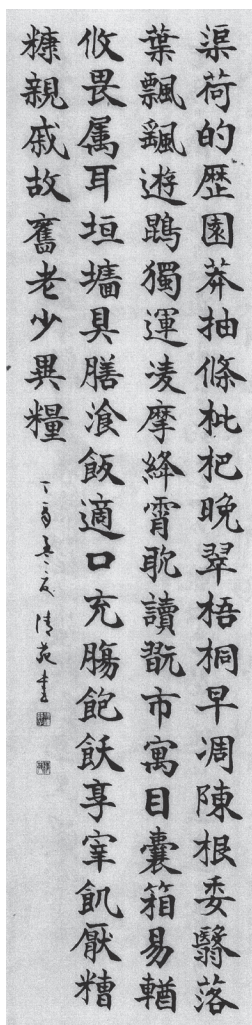 渠荷的歷園莽抽條枇杷晚翠梧桐早凋陳根委翳落
葉飄颻遊鵾獨運凌摩絳霄耽讀翫市寓目囊箱易輶
攸畏属耳垣墻具膳飡飯適口充膓飽飫享宰飢厭糟
糠親戚故舊老少異糧
丁酉 清苑書